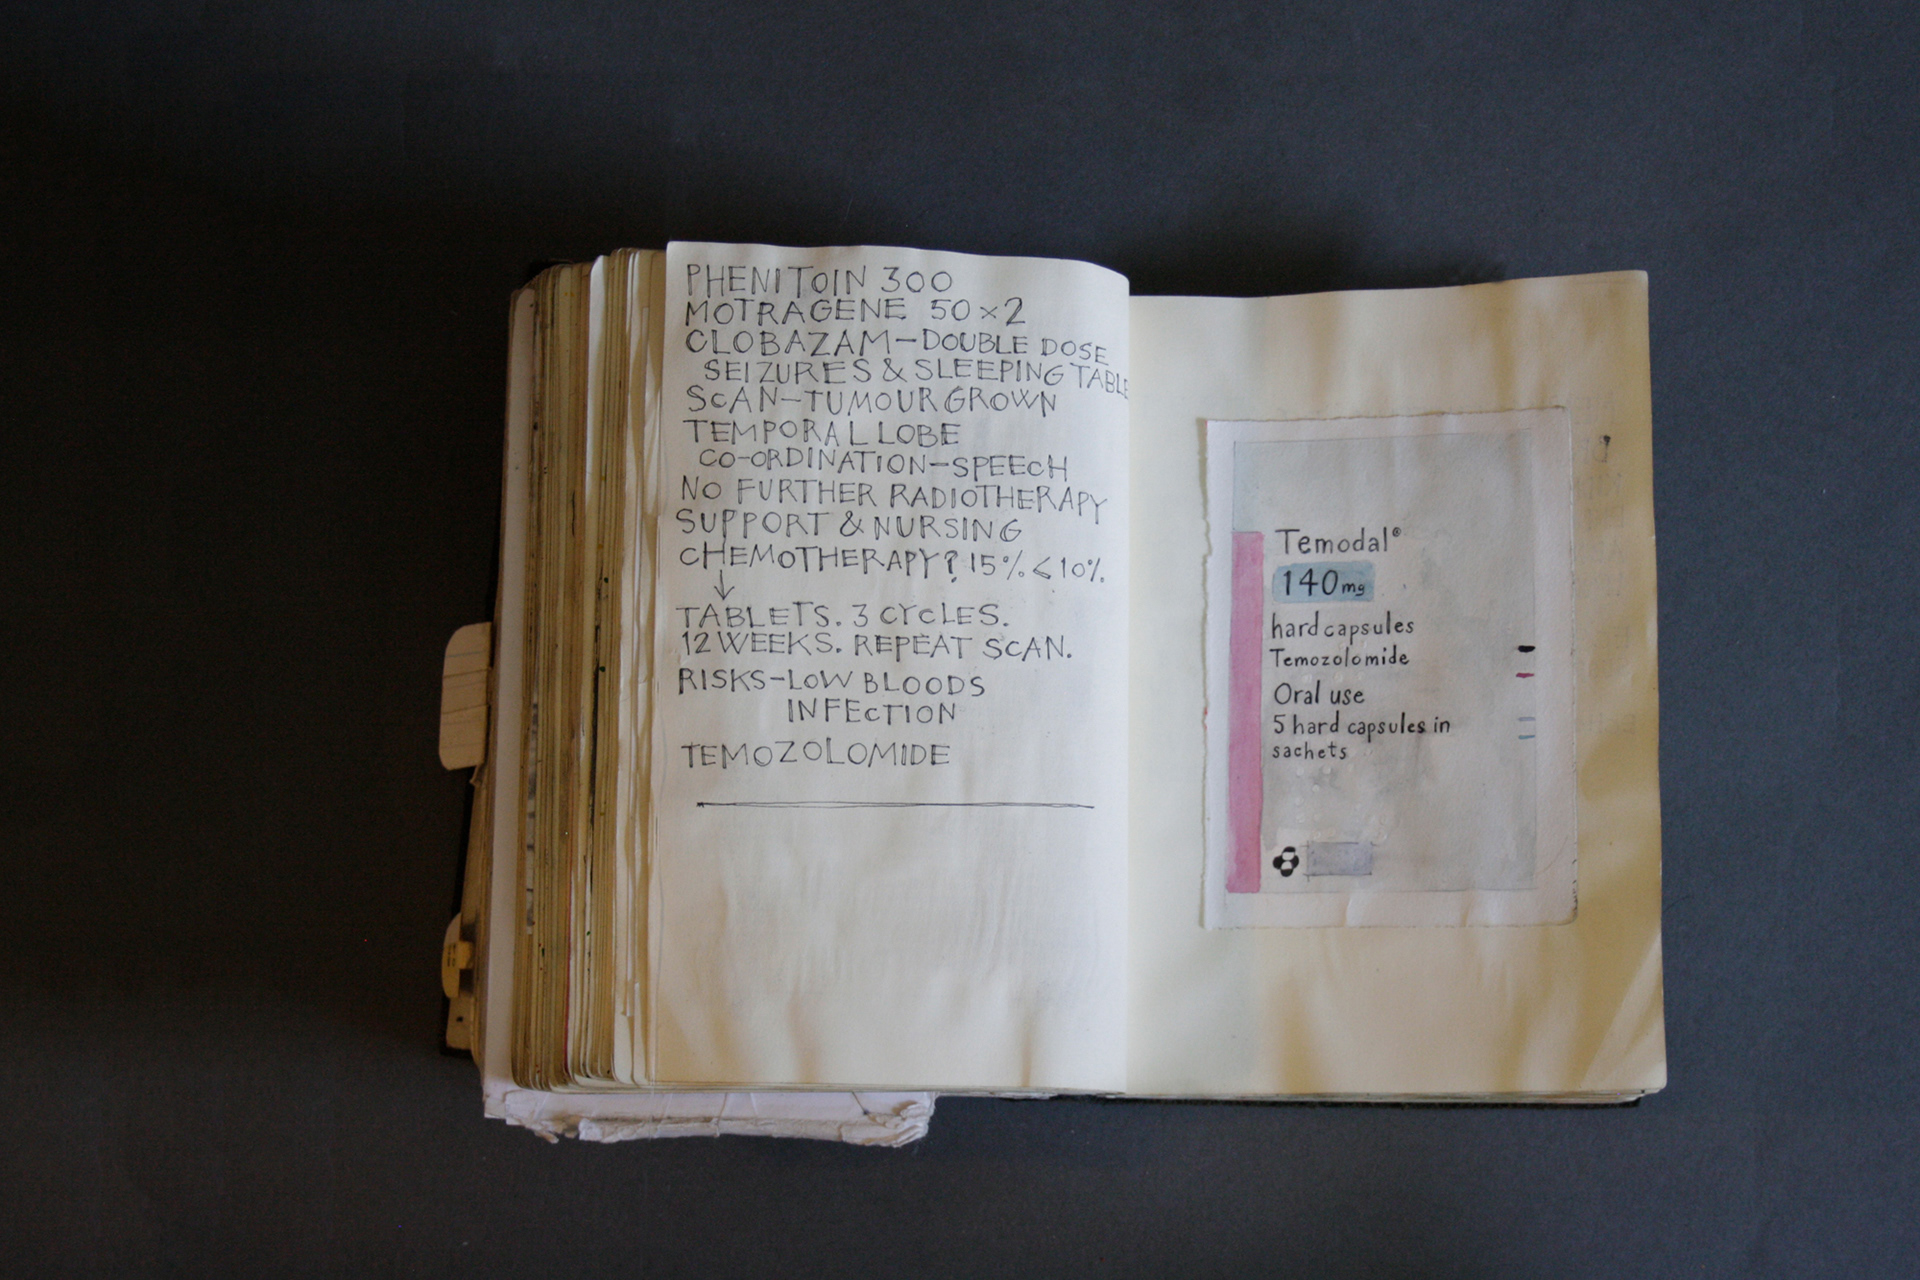 PHENITOIN 300
MOTRAGENE 50×2
CLOBAZAM–DOUBLE DOSE
SEIZURES & SLEEPING TABLE
SCAN–TUMOUR GROWN
TEMPORAL LOBE
CO-ORDINATION–SPEECH
NO FURTHER RADIOTHERAPY
SUPPORT & NURSING
CHEMOTHERAPY? 15% < 10%
↓
TABLETS. 3 CYCLES.
12 WEEKS. REPEAT SCAN.
RISKS–LOW BLOODS
INFECTION
TEMOZOLOMIDE
Temodal®
140mg
hard capsules
Temozolomide
Oral use
5 hard capsules in
sachets